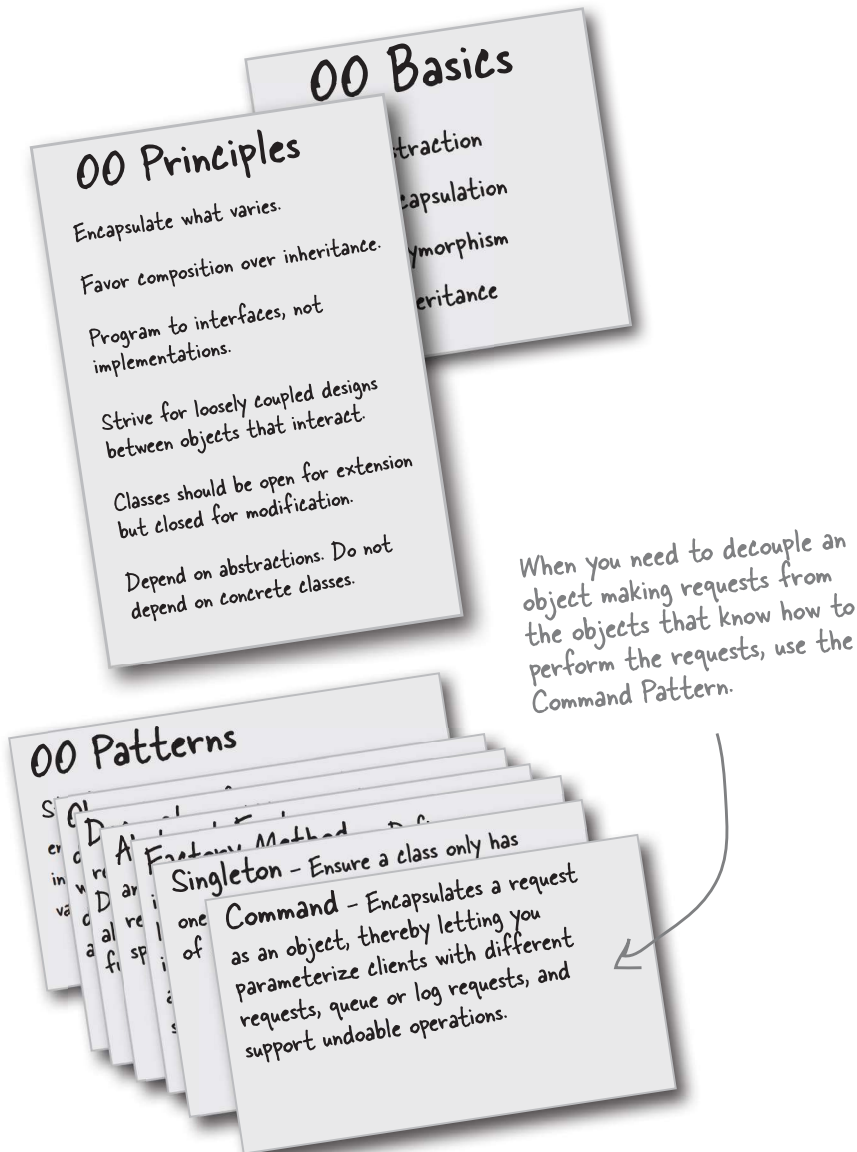 OO Basics
OO Principles
Encapsulate what varies.
Favor composition over inheritance.
Program to interfaces, not
implementations.
Strive for loosely coupled designs
between objects that interact.
Classes should be open for extension
but closed for modification.
Depend on abstractions. Do not
depend on concrete classes.
When you need to decouple an
object making requests from
the objects that know how to
perform the requests, use the
Command Pattern.
OO Patterns
Factory Method
Singleton – Ensure a class only has
one
of
Command – Encapsulates a request
as an object, thereby letting you
parameterize clients with different
requests, queue or log requests, and
support undoable operations.